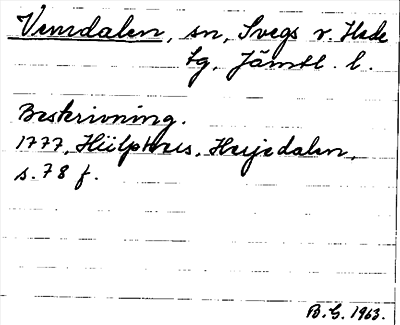 Vemdalen, sn, Svegs o. Hede
tg, Jämtl. l.
Beskrivning.
1777, Hülphers, Herjedalen,
s. 78 f.
B.G. 1963.